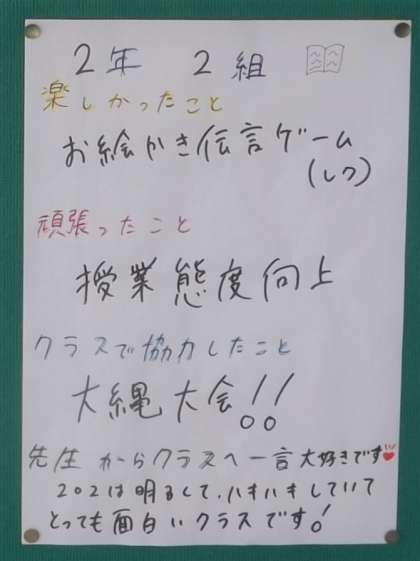 2年 2組
楽しかったこと
お絵かき伝言ゲーム
(レク)
頑張ったこと
授業態度向上
クラスで協力したこと
大縄大会!!
先生からクラスへ一言 大好きです
202は明るくて、ハキハキしていて
とっても面白いクラスです!